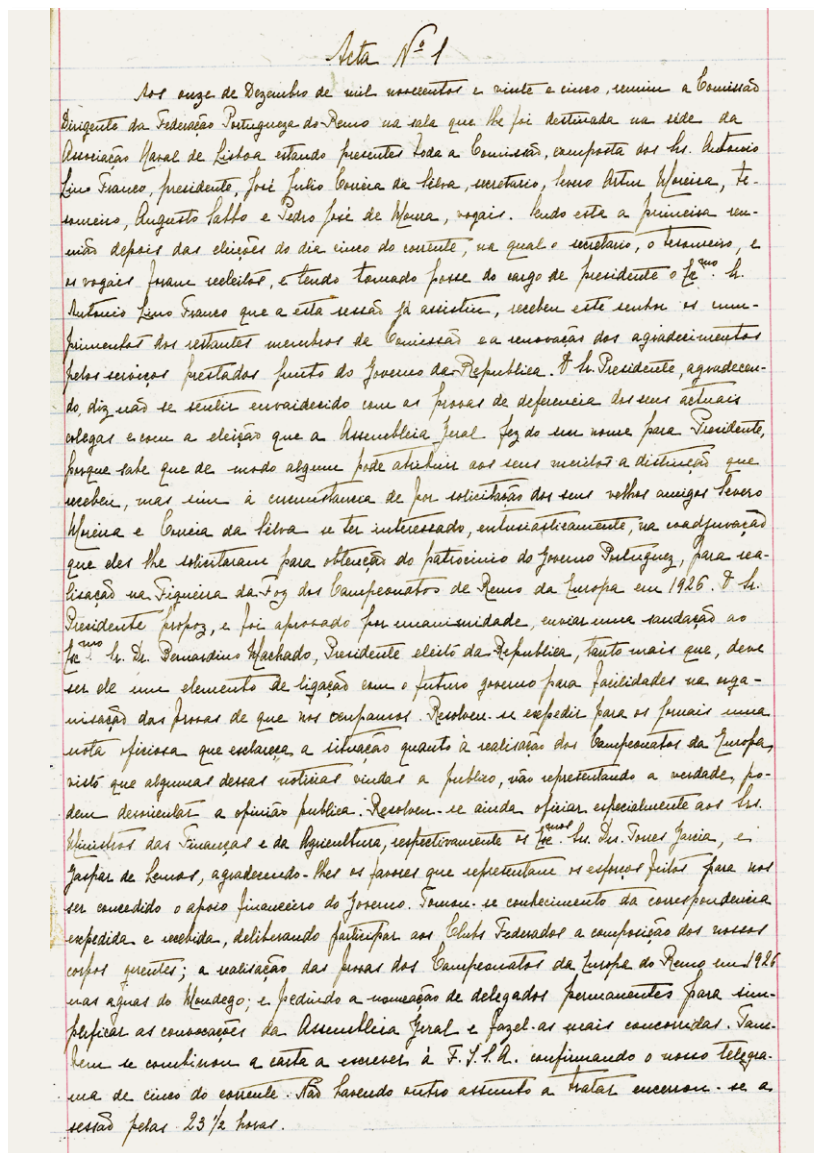 Acta Nº 1
Aos onze de Dezembro de mil novecentos e vinte e cinco, reuniu a Comissão
Dirigente da Federação Portugueza do Remo na sala que lhe foi destinada na séde da
Associação Naval de Lisboa estando presentes toda a Comissão, composta dos Srs. Antonio
Lino Franco, presidente, José Julio Correia da Silva, secretario, Severo Artur Moreira, te-
soureiro, Augusto Sabbo e Pedro José de Moura, vogais. Sendo esta a primeira reu-
nião depois das eleições do dia cinco do corrente, na qual o secretario, o tesoureiro, e
os vogais foram reeleitos, e tendo tomado posse do cargo de presidente o Ex.mo Sr.
Antonio Lino Franco que a esta sessão já assistiu, recebeu este senhor os cum-
primentos dos restantes membros da Comissão e a renovação dos agradecimentos
pelos serviços prestados junto do Governo da Republica. O Sr. Presidente, agradecen-
do, diz não se sentir envaidecido com as provas de deferencia dos seus actuais
colegas e com a eleição que a Assembleia Geral fez do seu nome para Presidente,
porque sabe que de modo algum pode atribuir aos seus meritos a distinção que
recebeu, mas sim á circunstancia de por solicitação dos seus velhos amigos Severo
Moreira e Correia da Silva se ter interessado, entusiasticamente, na coadjuvação
que eles lhe solicitaram para obtenção do patrocinio do Governo Portuguez, para rea-
lisação na Figueira da Foz dos Campeonatos de Remo da Europa em 1926. O Sr.
Presidente propoz, e foi aprovado por unanimidade, enviar uma saudação ao
Ex.mo Sr. Dr. Bernardino Machado, Presidente eleito da Republica, tanto mais que, deve
ser ele um elemento de ligação com o futuro governo para facilidades na orga-
nisação das provas de que nos ocupamos. Resolveu-se expedir para os jornais uma
nota oficiosa que esclareça a situação quanto á realisação dos Campeonatos da Europa,
visto que algumas dessas noticias vindas a publico, não representando a verdade, po-
dem desorientar a opinião publica. Resolveu-se ainda oficiar especialmente aos Srs.
Ministros das Finanças e da Agricultura, respectivamente os Ex.mos Srs. Drs. Torres Garcia, e
Gaspar de Lemos, agradecendo-lhes os favores que representam os esforços feitos para nos
ser concedido o apoio financeiro do Governo. Tomou-se conhecimento da correspondencia
expedida e recebida, deliberando participar aos Clubs Federados a composição dos nossos
corpos gerentes; a realisação das provas dos Campeonatos da Europa do Remo em 1926
nas aguas do Mondego; e pedindo a nomeação de delegados permanentes para sim-
plificar as convocações da Assembleia Geral e fazel-as mais concorridas. Tam-
bem se combinou a carta a escrever á F. I. S. A. confirmando o nosso telegra-
ma de cinco do corrente. Não havendo outro assunto a tratar encerrou-se a
sessão pelas 23 1/2 horas.